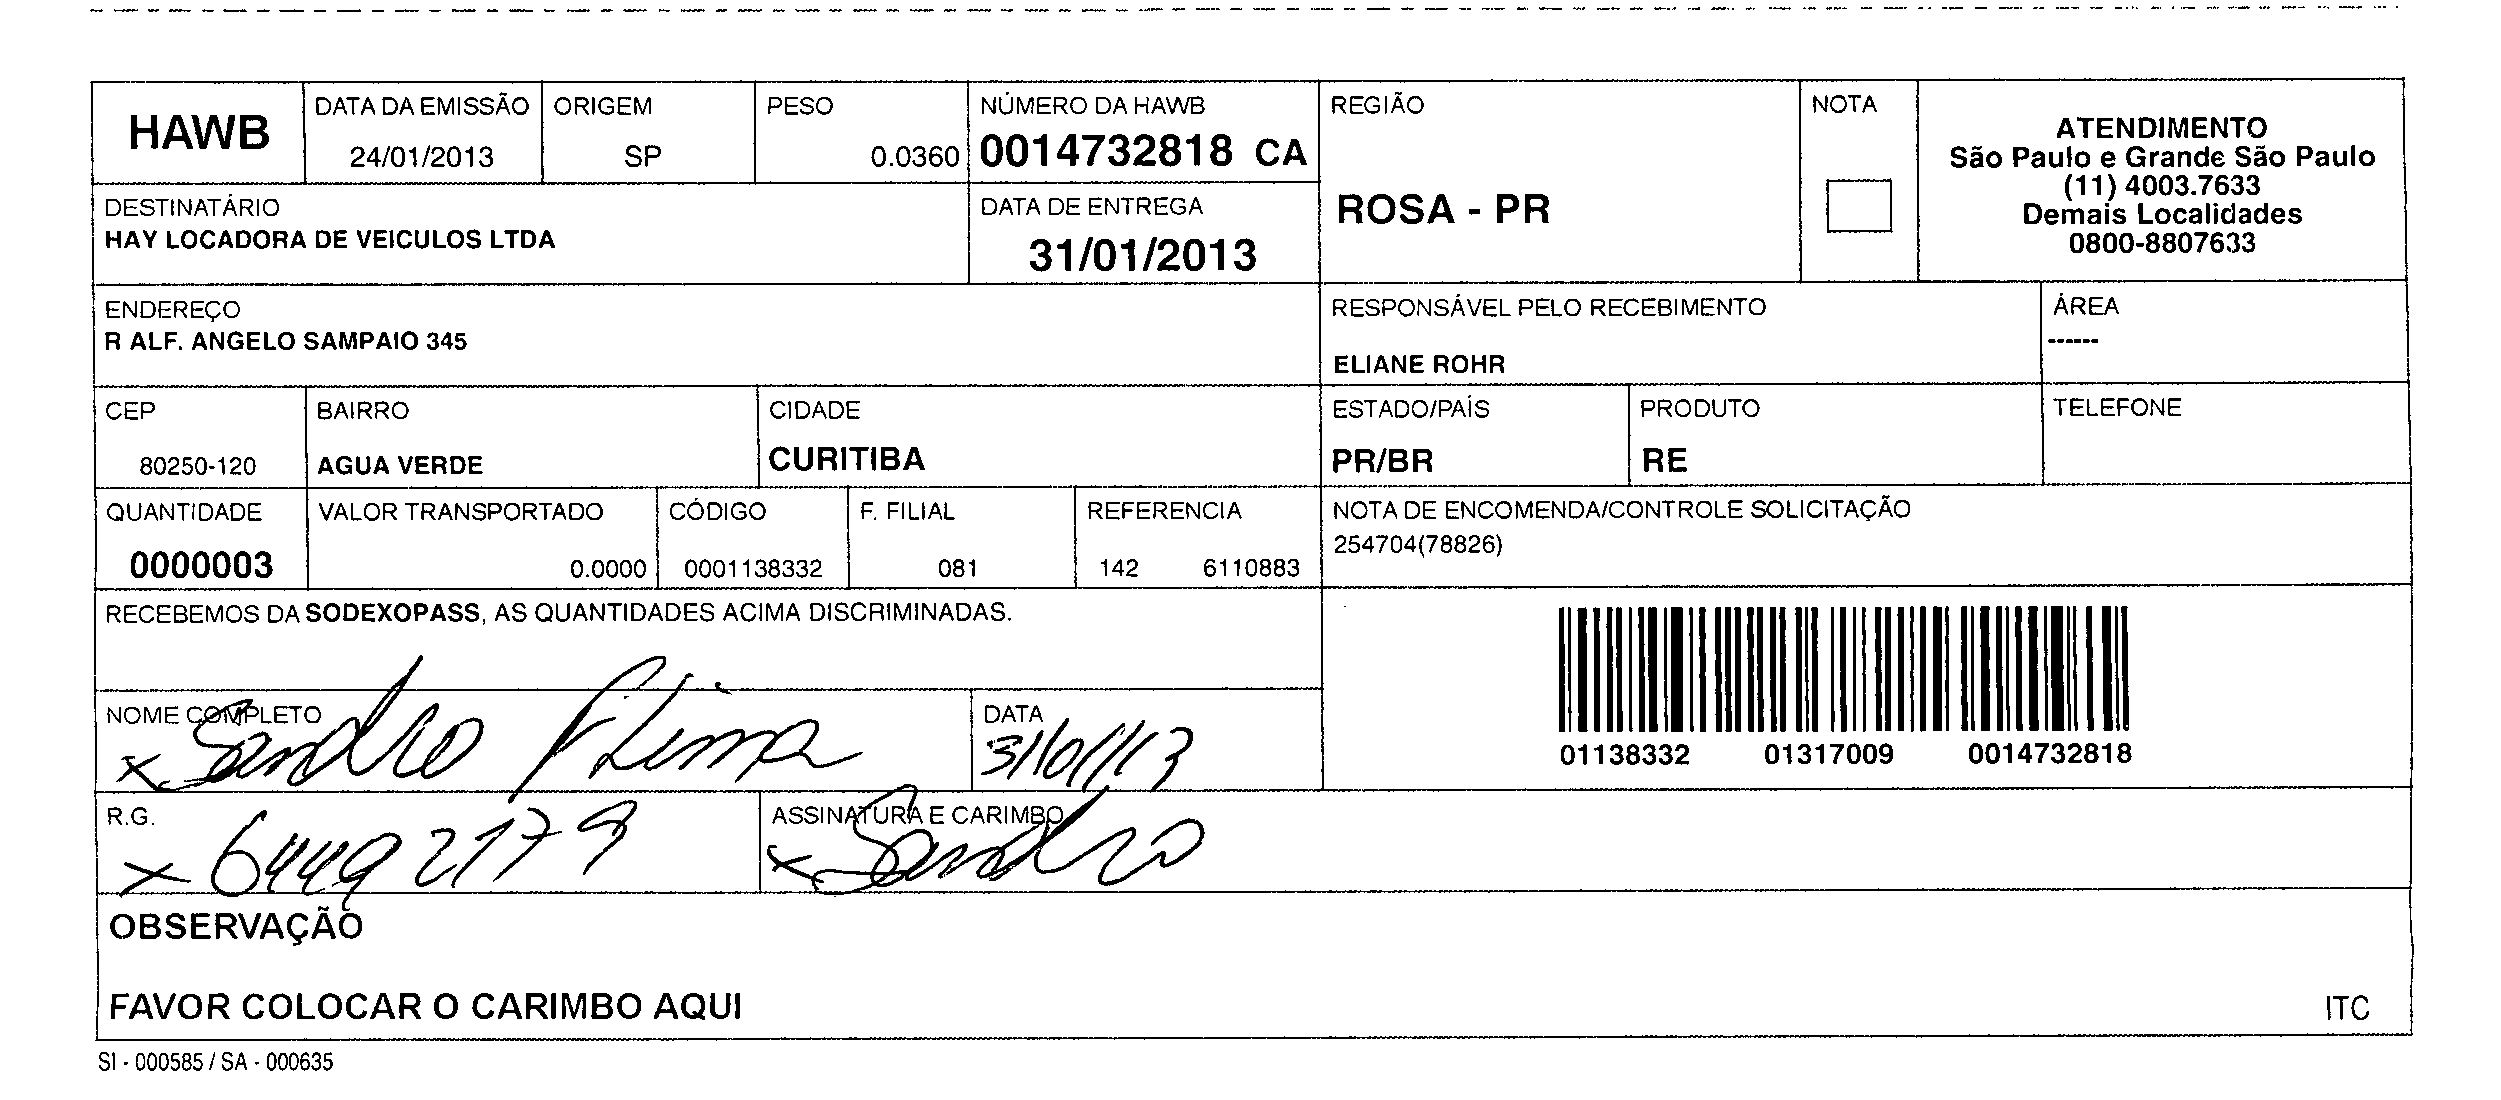 HAWB
DATA DA EMISSÃO
24/01/2013
ORIGEM
SP
PESO
0.0360
NÚMERO DA HAWB
0014732818 CA
REGIÃO
ROSA - PR
NOTA
ATENDIMENTO
São Paulo e Grande São Paulo
(11) 4003.7633
Demais Localidades
0800-8807633
DESTINATÁRIO
HAY LOCADORA DE VEICULOS LTDA
DATA DE ENTREGA
31/01/2013
ENDEREÇO
R ALF. ANGELO SAMPAIO 345
RESPONSÁVEL PELO RECEBIMENTO
ELIANE ROHR
ÁREA
------
CEP
80250-120
BAIRRO
AGUA VERDE
CIDADE
CURITIBA
ESTADO/PAÍS
PR/BR
PRODUTO
RE
TELEFONE
QUANTIDADE
0000003
VALOR TRANSPORTADO
0.0000
CÓDIGO
0001138332
F. FILIAL
081
REFERENCIA
142 6110883
NOTA DE ENCOMENDA/CONTROLE SOLICITAÇÃO
254704(78826)
RECEBEMOS DA SODEXOPASS, AS QUANTIDADES ACIMA DISCRIMINADAS.
01138332 01317009 0014732818
NOME COMPLETO
x Sandro F Lima
DATA
31/01/13
R.G.
x 64492179
ASSINATURA E CARIMBO
x Sandro
OBSERVAÇÃO
FAVOR COLOCAR O CARIMBO AQUI
ITC
SI - 000585 / SA - 000635